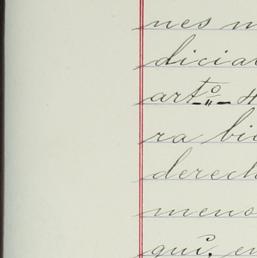 nes m
dicia
art.º 4
ra bi
derech
meno
qui, en